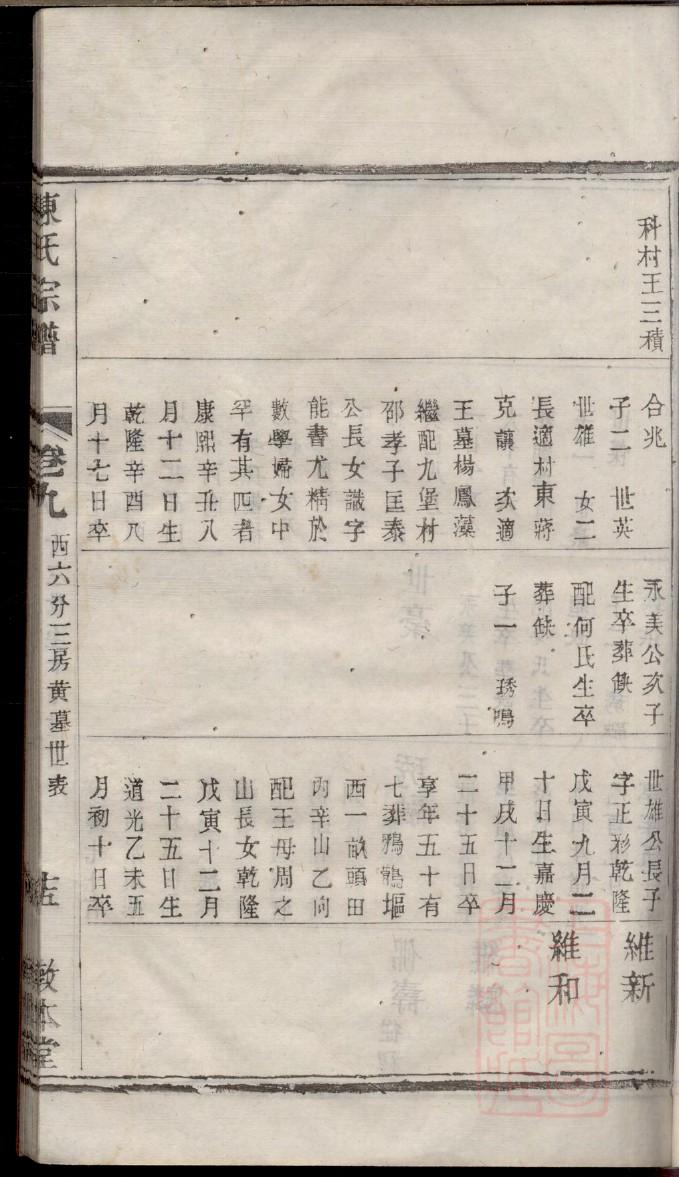 科村王三積
合兆
子二 世英
世雄 女二
長適村東蔣
克讓 次適
王墓楊鳳藻
繼配九堡村
邵孝子匡泰
公長女識字
能書尤精於
數學婦女中
罕有其匹者
康熙辛丑八
月十二日生
乾隆辛酉八
月十七日卒
永美公次子
生卒葬缺
配何氏生卒
葬缺
子一 琇鳴
世雄公長子
字正彩乾隆
戊寅九月二
十日生嘉慶
甲戌十二月
二十五日卒
享年五十有
七葬鴉鵲塸
西一畝頭田
內辛山乙向
配王母周之
山長女乾隆
戊寅十二月
二十五日生
道光乙未五
月初十日卒
維新
維和
陳氏宗譜
卷九
西六分三房黃墓世表
敦本堂